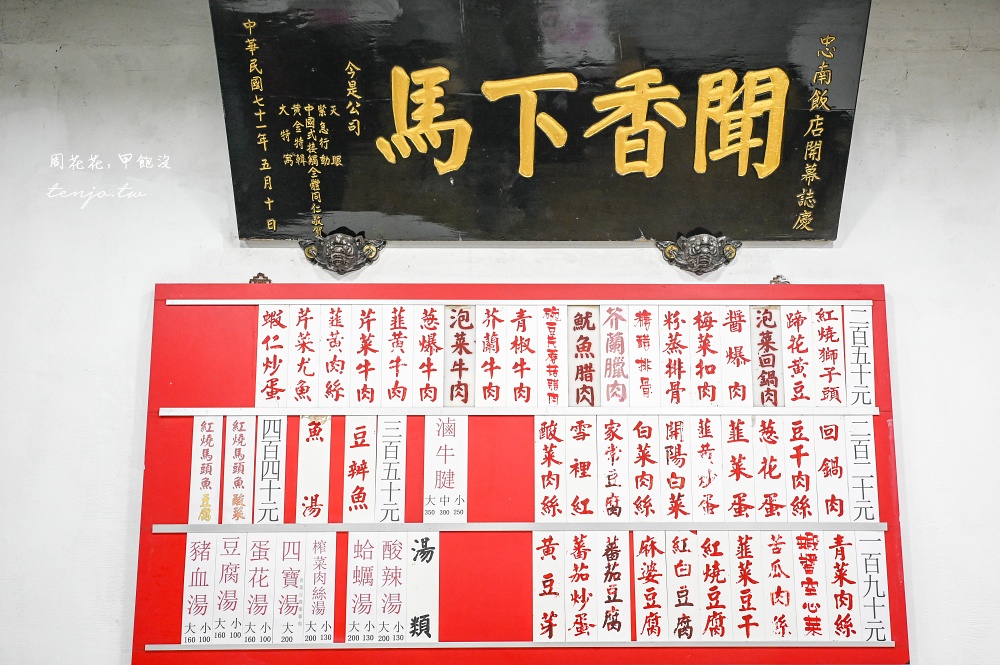 忠南飯店開幕誌慶
聞香下馬
今是公司
天眼
緊急行動
中國式接觸
黃金特輯
大特寫
全體同仁敬賀
中華民國七十一年五月十日
周花花,甲飽沒
tenjo.tw
二百五十元
紅燒獅子頭
蹄花黃豆
泡菜回鍋肉
醬爆肉
梅菜扣肉
粉蒸排骨
糖醋排骨
芥蘭臘肉
魷魚腊肉
青椒牛肉
芥蘭牛肉
泡菜牛肉
葱爆牛肉
韮黃牛肉
芹菜牛肉
韮黃肉絲
芹菜尤魚
蝦仁炒蛋
二百二十元
回鍋肉
豆干肉絲
葱花蛋
韮菜蛋
韮黃炒蛋
開陽白菜
白菜肉絲
家常豆腐
雪裡紅
酸菜肉絲
滷牛腱
大350 中300 小250
三百五十元
豆辦魚
魚湯
四百四十元
紅燒馬頭魚酸菜
紅燒馬頭魚豆腐
一百九十元
青菜肉絲
蝦醬空心菜
苦瓜肉絲
韮菜豆干
紅燒豆腐
紅白豆腐
麻婆豆腐
蕃茄豆腐
蕃茄炒蛋
黃豆芽
湯類
酸辣湯
大200 小130
蛤蠣湯
大200 小130
榨菜肉絲湯
大200 小130
四寶湯
大200
蛋花湯
大160 小100
豆腐湯
大160 小100
豬血湯
大160 小100